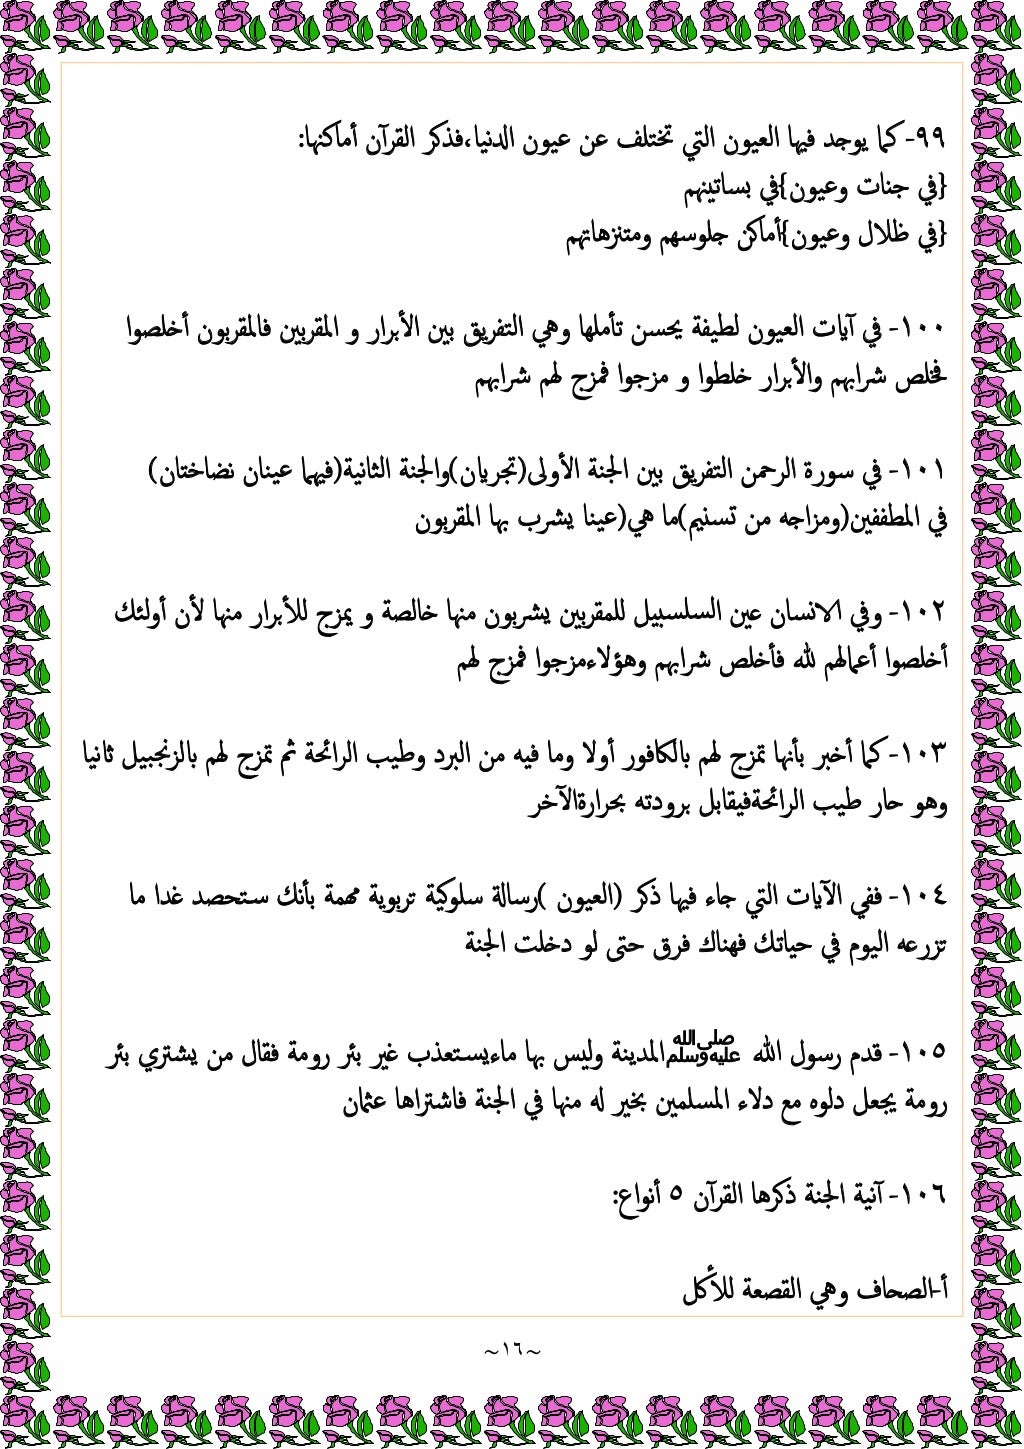 ٩٩-كما يوجد فيها العيون التي تختلف عن عيون الدنيا،فذكر القرآن أماكنها:
{في جنات وعيون}في بساتينهم
{في ظلال وعيون}أماكن جلوسهم ومتنزهاتهم
١٠٠- في آيات العيون لطيفة يحسن تأملها وهي التفريق بين الأبرار و المقربين فالمقربون أخلصوا
فخلص شرابهم والأبرار خلطوا و مزجوا فمزج لهم شرابهم
١٠١- في سورة الرحمن التفريق بين الجنة الأولى(تجريان)والجنة الثانية(فيهما عينان نضاختان)
في المطففين(ومزاجه من تسنيم)ما هي(عينا يشرب بها المقربون
١٠٢- وفي الانسان عين السلسبيل للمقربين يشربون منها خالصة و يمزج للأبرار منها لأن أولئك
أخلصوا أعمالهم لله فأخلص شرابهم وهؤلاءمزجوا فمزج لهم
١٠٣-كما أخبر بأنها تمزج لهم بالكافور أولا وما فيه من البرد وطيب الرائحة ثم تمزج لهم بالزنجبيل ثانيا
وهو حار طيب الرائحةفيقابل برودته بحرارةالآخر
١٠٤- ففي الآيات التي جاء فيها ذكر (العيون )رسالة سلوكية تربوية مهمة بأنك ستحصد غدا ما
تزرعه اليوم في حياتك فهناك فرق حتى لو دخلت الجنة
١٠٥- قدم رسول الله ﷺالمدينة وليس بها ماءيستعذب غير بئر رومة فقال من يشتري بئر
رومة يجعل دلوه مع دلاء المسلمين بخير له منها في الجنة فاشتراها عثمان
١٠٦- آنية الجنة ذكرها القرآن ٥ أنواع:
أ-الصحاف وهي القصعة للأكل
~١٦~